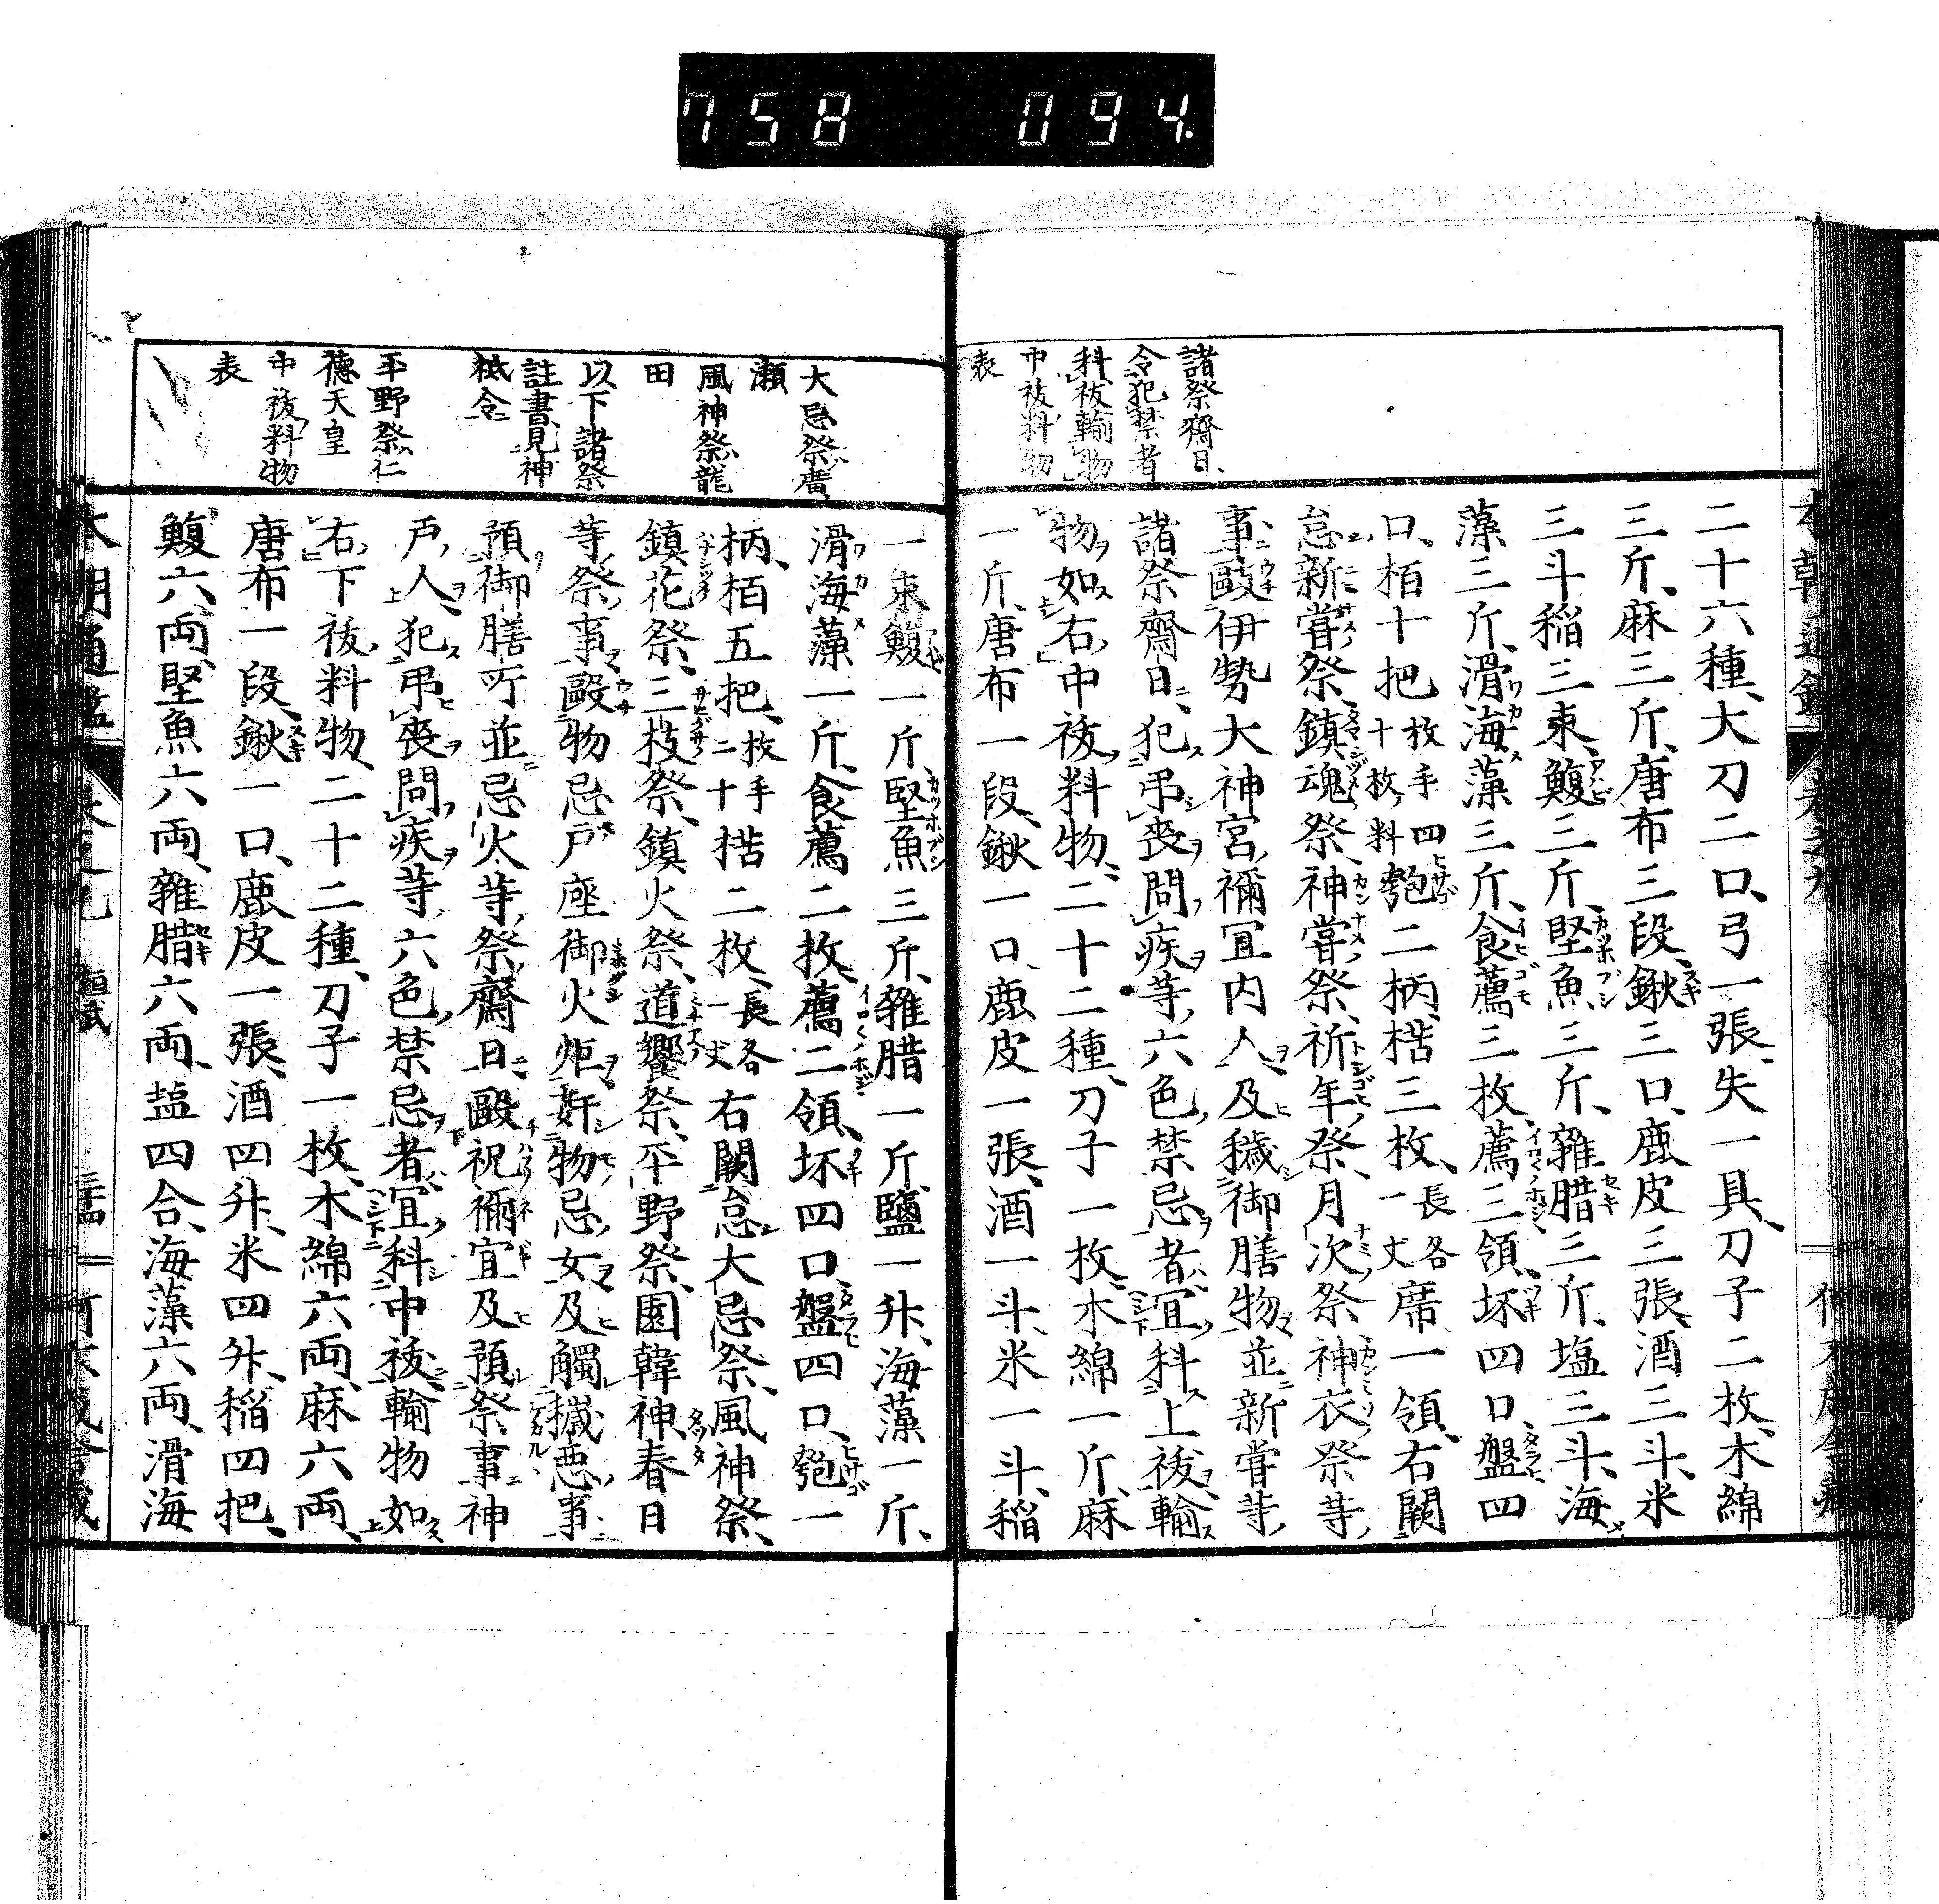 758 094.
諸祭齋日、
令犯禁者
科祓輸物
中祓料物
表
二十六種、大刀二口、弓一張、失一具、刀子二枚、木綿
三斤、麻三斤、唐布三段、鍬三口、鹿皮三張、酒三斗、米
三斗稲三束、鰒三斤、堅魚三斤、雜腊三斤、塩三斗、海
藻三斤、滑海藻三斤、食薦三枚、薦三領、坏四口、盤四
口、栢十把枚手四十枚料匏二柄、楉三枚、長各一丈席一領、右闕
怠新嘗祭、鎮魂祭、神嘗祭、祈年祭、月次祭神衣祭等、
事、毆伊勢大神宮禰冝内人及穢御膳物並新嘗等、
諸祭齋日、犯弔喪問疾等六色禁忌者冝科上祓輸
物如右、中祓料物、二十二種、刀子一枚、木綿一斤、麻
一斤、唐布一段、鍬一口、鹿皮一張、酒一斗、米一斗、稲
大忌祭、廣
瀬
風神祭、龍
田
以下諸祭
註書見神
祇令
平野祭仁
德天皇
中祓料物
表
一束鰒一斤、堅魚三斤、雜腊一斤、鹽一升、海藻一斤、
滑海藻一斤、食薦二枚、薦二領、坏四口、盤四口、匏一
柄、栢五把、枚手二十楉二枚、長各一丈右闕怠大忌祭、風神祭、
鎮花祭、三枝祭、鎮火祭、道饗祭、平野祭、園韓神、春日
等祭事、毆物忌戸座御火炬奸物忌女及觸穢悪事
預御膳所並忌火等祭齋日、毆祝禰宜及預祭事神
戸人犯弔喪問疾等六色禁忌者冝科中祓輸物如
右、下祓料物、二十二種、刀子一枚、木綿六両、麻六両、
唐布一段、鍬一口、鹿皮一張、酒四升、米四升、稲四把、
鰒六両、堅魚六両、雜腊六両、塩四合、海藻六両、滑海